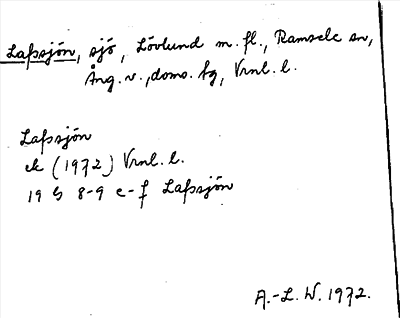 Lafssjön, sjö, Lövlund m. fl., Ramsele sn,
Ång. v., doms. fg, Vrnl. l.
Lafssjön
ek (1972) Vrnl. l.
19 G 8-9 e-f Lafssjön
A.-L. W. 1972.